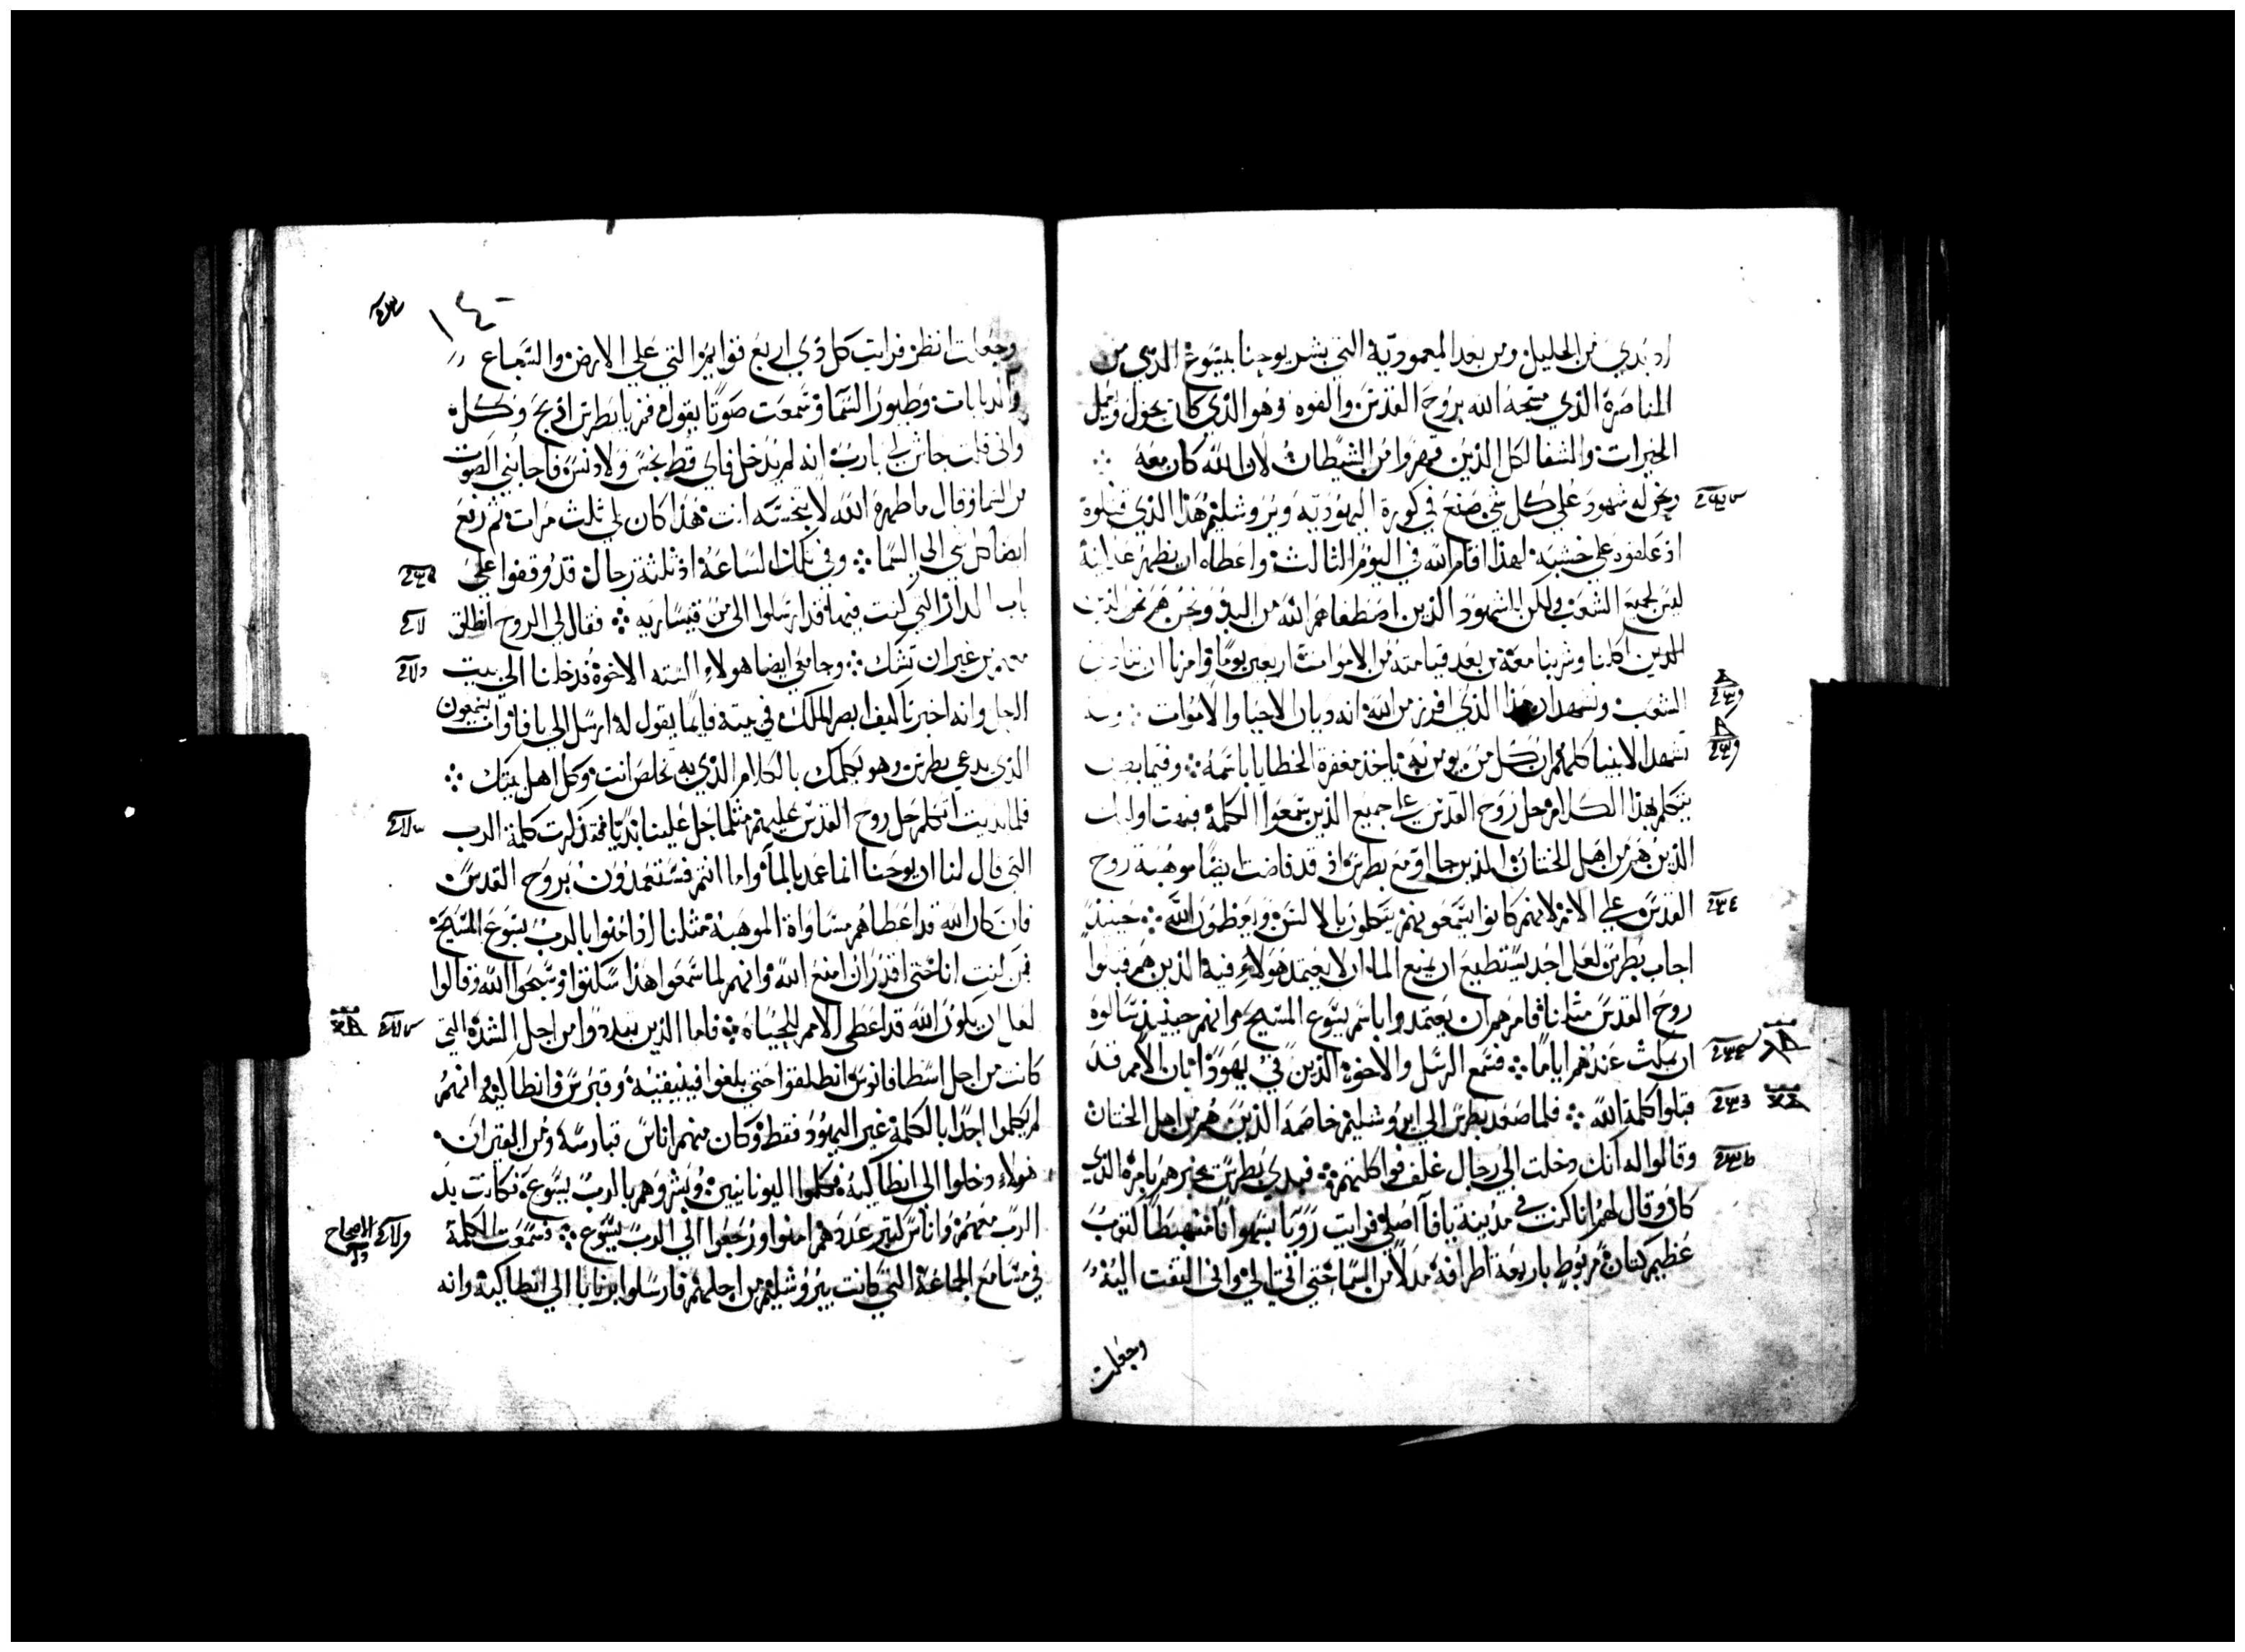 اذ بدي من الجليل ومن بعد المعمودية التي بشر يوحنا بيسوع الذي من
الناصرة الذي مسحه الله بروح القدس والقوه وهو الذي كان يجول ويعمل
الخيرات والشفا لكل الذين قهروا من الشيطان لان الله كان معه
ونحن له شهود على كل شي صنع في كورة اليهوديه ويروشليم هذا الذي قتلوة
اذ علقوه على خشبه لهذا اقام الله في اليوم الثالث واعطاه ان يظهر علانية
ليس لجميع الشعب ولكن الشهود الذين اصطفاهم الله من البدو ونحن هم
الذين اكلنا وشربنا معه من بعد قيامته من الاموات اربعين يوما وامرنا ان ننادي
الشعب ونشهد ان هذا الذي افرز من الله انه ديان الاحيا والاموات
تشهد الانبيا كلهم ان كل من يومن به ياخذ مغفرة الخطايا باسمه وفيما بطرس
يتكلم بهذا الكلام حل روح القدس على جميع الذين سمعوا الكلمة فبهت اوليك
الذين هم من اهل الختان الذين جاوا مع بطرس اذ قد فاضت ايضا موهبة روح
القدس على الامم لانهم كانوا يسمعونهم يتكلمون بالالسن ويعظمون الله حينيذ
اجاب بطرس لعل احد يستطيع ان يمنع الما ان لا يعتمد هولاء فيه الذين هم قبلوا
روح القدس مثلنا فامرهم ان يعتمدوا باسم يسوع المسيح وانهم حينيذ سالوه
ان يمكث عندهم اياما فسمع الرسل والاخوه الذين في يهودا بان الامم قد
قبلوا كلمة الله فلما صعد بطرس الي ايروشليم خاصمه الذين هم من اهل الختان
وقالوا له انك دخلت الي رجال غلف واكلتهم فبدي بطرس يخبرهم بامره الذي
كان وقال لهم انا كنت في مدينة يافا اصلي فرايت رويا بسهو انا منهبطا كثوب
عظيم كتان مربوط باربعة اطرافه مدلا من السما حتي اتي الي واني التفت اليه
وجعلت
١٤٠
وجعلت انظر فرايت كل ذي اربع قوايم التي علي الارض والسباع
والدبابات وطيور السما وسمعت صوتا يقول قم يا بطرس اذبح وكل
واني قلت حاش لي يا رب انه لم يدخل فاي قط نجس ولا دنس فاجابني الصوت
من السما وقال ما طهره الله لا تنجسه انت هذا كان لي ثلث مرات ثم رفع
ايضا كل شي الي السما وفي تلك الساعة اذ ثلثة رجال قد وقفوا علي
باب الدار التي كنت فيها قد ارسلوا الي من قيساريه فقال لي الروح انطلق
معهم من غير ان تشك وجا معي ايضا هولاء السته الاخوة فدخلنا الي بيت
الرجل وانه اخبرنا كيف ابصر الملك في بيته قايما يقول له ارسل الي يافا وات بسمعون
الذي يدعي بطرس وهو يكلمك بالكلام الذي به تخلص انت وكل اهل بيتك
فلما بديت اتكلم حل روح القدس عليهم مثلما حل علينا بديا فتذكرت كلمة الرب
التي قال لنا ان يوحنا انما عمد بالما واما انتم فستعمدون بروح القدس
فان كان الله قد اعطاهم مساواة الموهبة مثلنا اذ امنوا بالرب يسوع المسيح
فمن كنت انا حتي اقدر ان امنع الله وانهم لما سمعوا هذا سكتوا وسبحوا الله وقالوا
لعل ان يكون الله قد اعطي الامم للحياه فاما الذين تبددوا من اجل الشدة التي
كانت من اجل اسطافانوس انطلقوا حتي بلغوا فينيقيه وقبرس وانطاكيه انهم
لم يكلموا احدا بالكلمة غير اليهود فقط وكان منهم اناس قبارسة ومن القيران
هولاء دخلوا الي انطاكيه فكلموا اليونانيين وبشروهم بالرب يسوع فكانت يد
الرب معهم واناس كثير عددهم امنوا ورجعوا الي الرب يسوع فسمعت الكلمة
الاصحاح
في مسامع الجماعة التي كانت بيروشليم من اجلهم فارسلوا برنابا الي انطاكية وانه